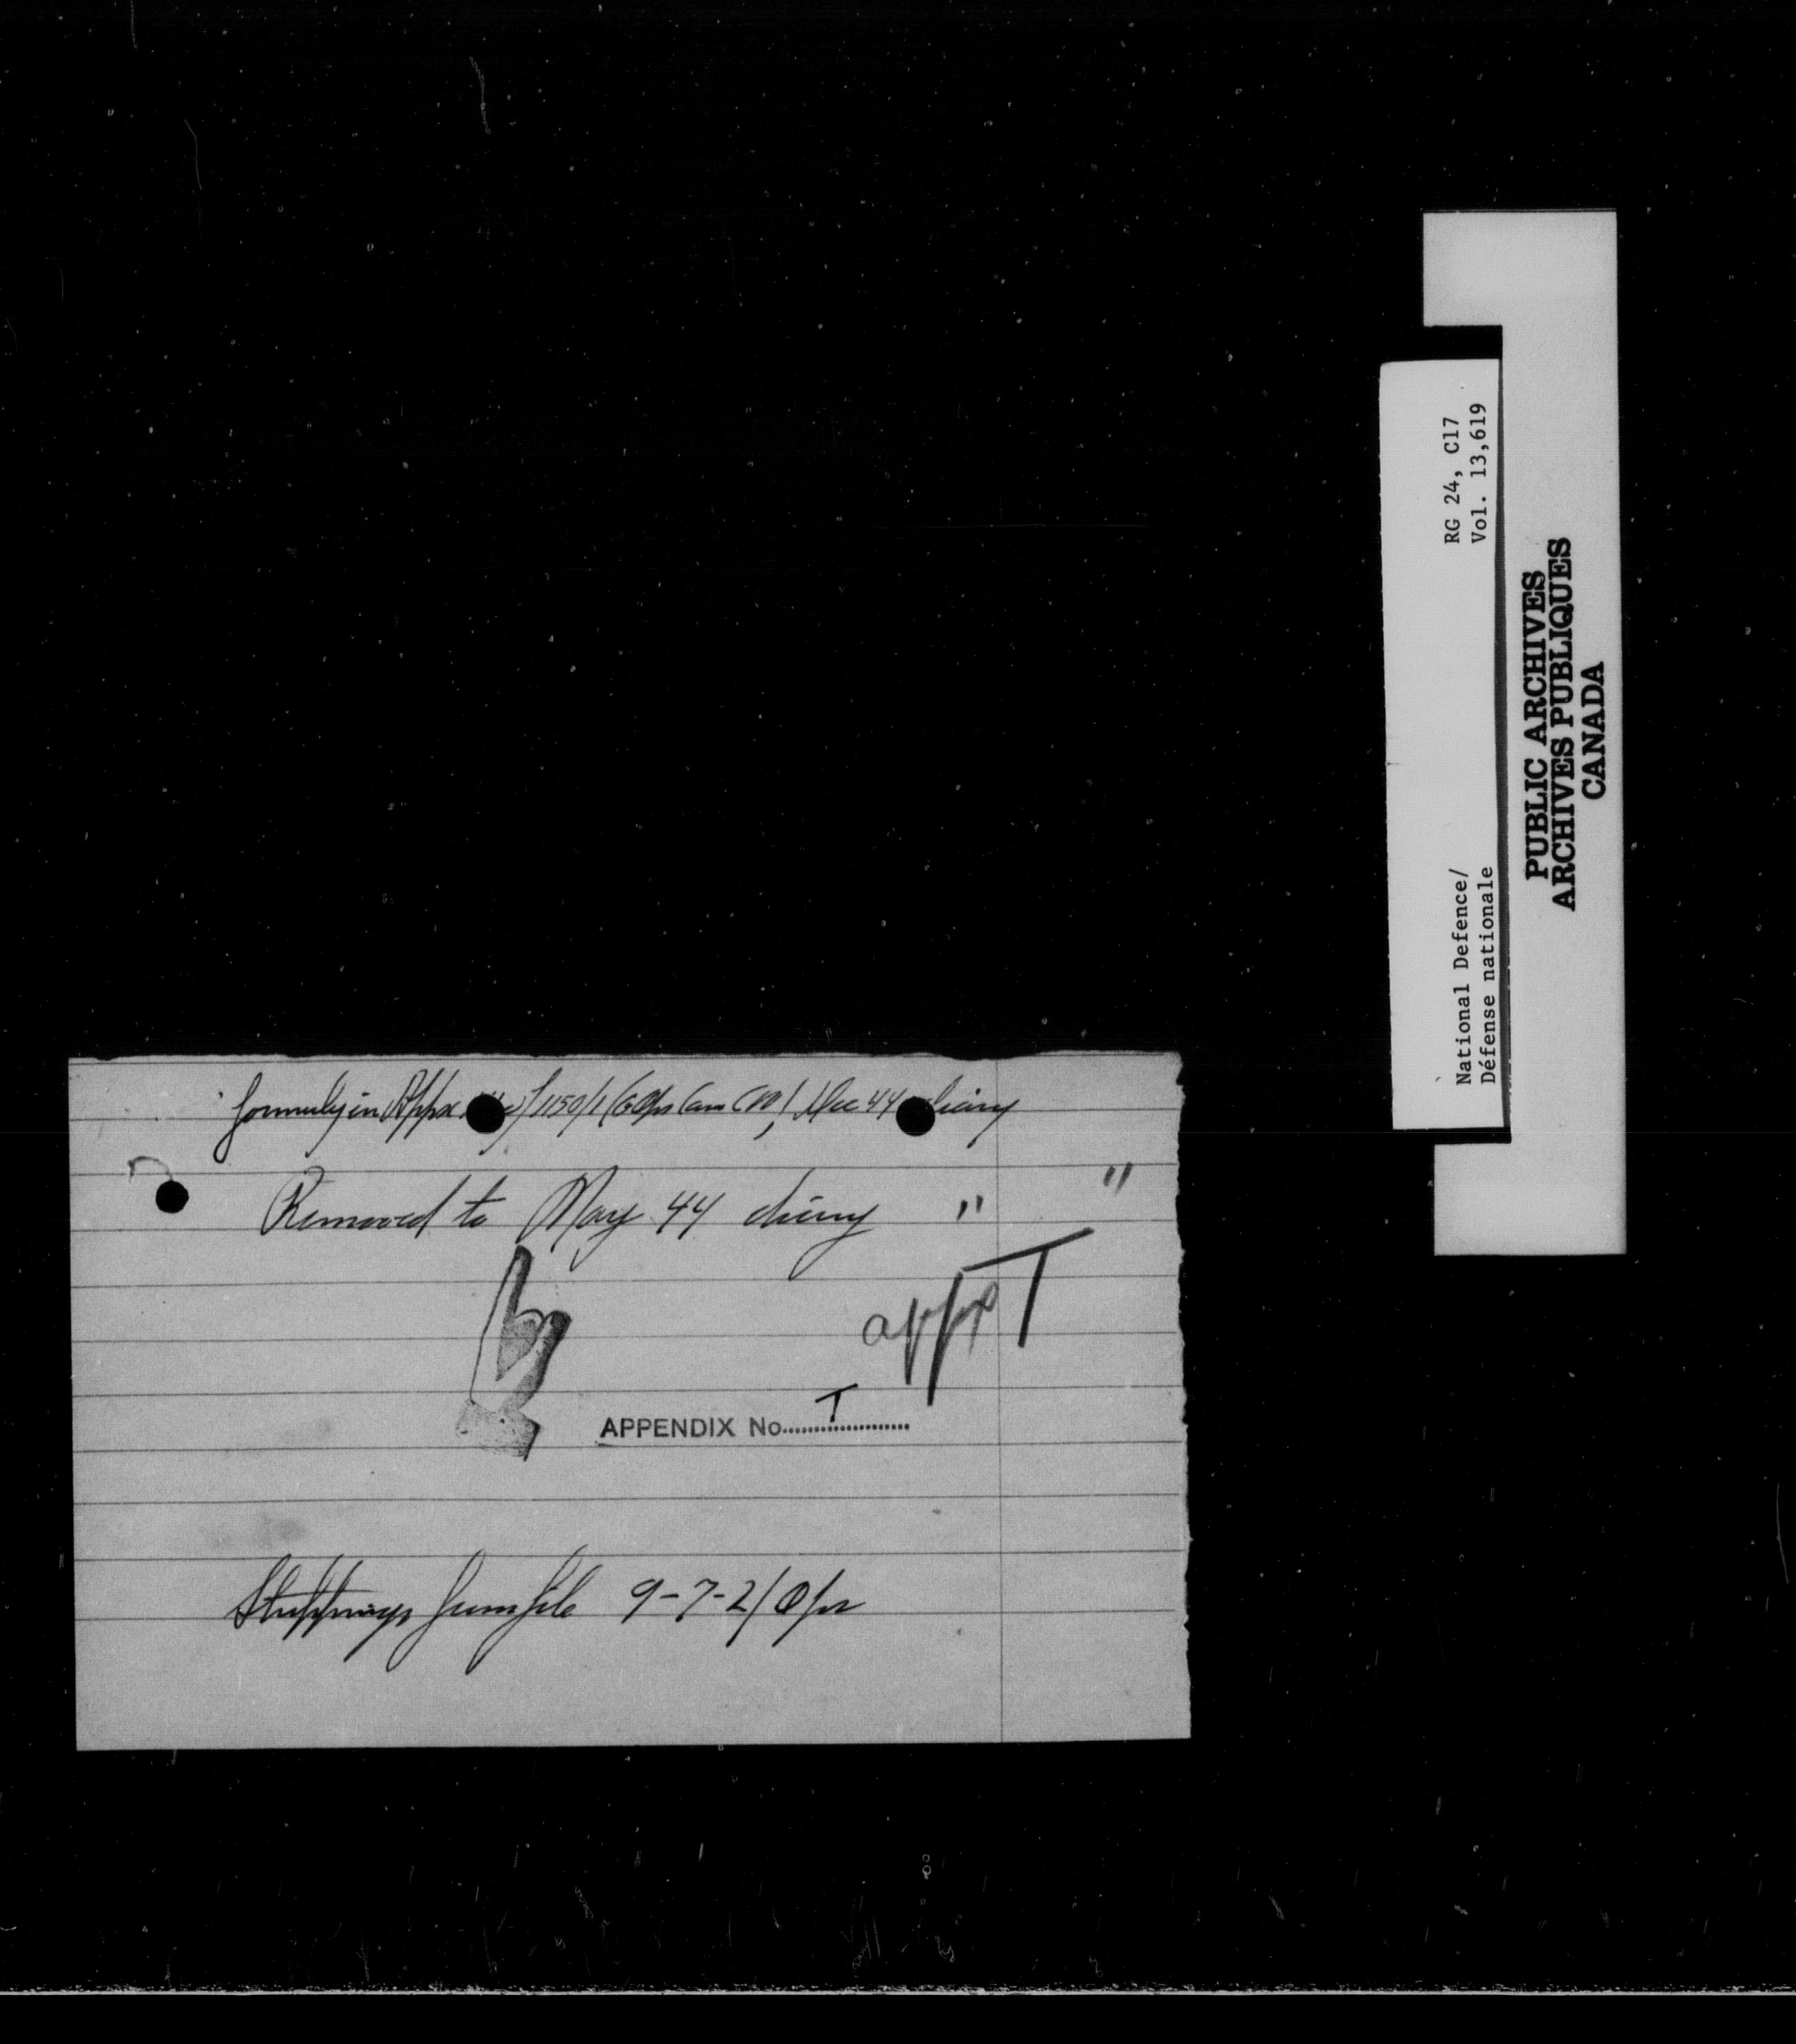 formerly in Appx 1150/1 (GOps Can Dec 44 diary
Removed to May 44 diary " "
appx T
APPENDIX No. T
Strippings from file 9-7-2/Ops
RG 24, C17
Vol. 13,619
National Defence/
Défense nationale
PUBLIC ARCHIVES
ARCHIVES PUBLIQUES
CANADA